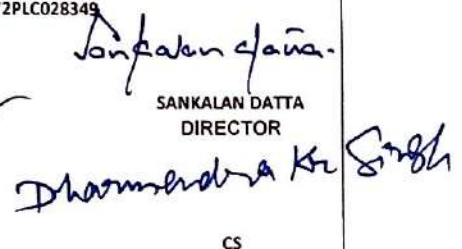 72PLC028349
Sankalan Datta.
SANKALAN DATTA
DIRECTOR
Dharmendra Kr Singh
CS